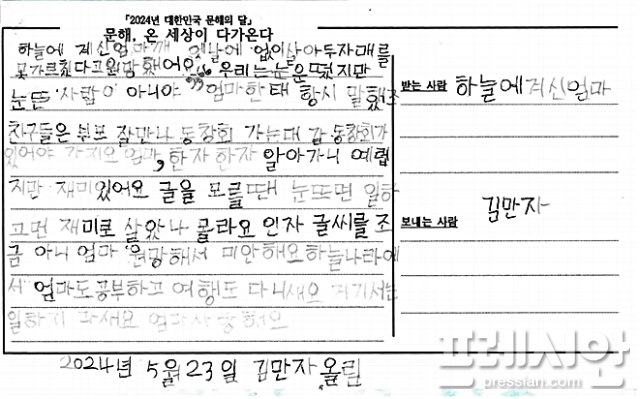 『2024년 대한민국 문해의 달』
문해, 온 세상이 다가온다
하늘에 계신엄마께 옛날에 없이살아두자매를
못가르쳤다고원망했어요 우리는눈은떴지만
눈뜬 사람이 아니야 엄마한태 항시 말했죠
친구들은 뷴프 잘만나 동창회 가는대 감 동창회가
있어야 가지요 엄마, 한자 한자 알아가니 예렵
지만 재미있어요 글을 모를땐 눈뜨면 일하
고먼 재미로 살았나 몰라요 인자 글씨를 조
금 아니 엄마 원망해서 미안해요하늘나라에
서 엄마도공부하고 여행도 다니새요 거기서는
일하지 마새요 엄마사랑해요
2024년 5월23일 김만자 올림
받는 사람 하늘에계신엄마
보내는 사람 김만자
프레시안
pressian.com